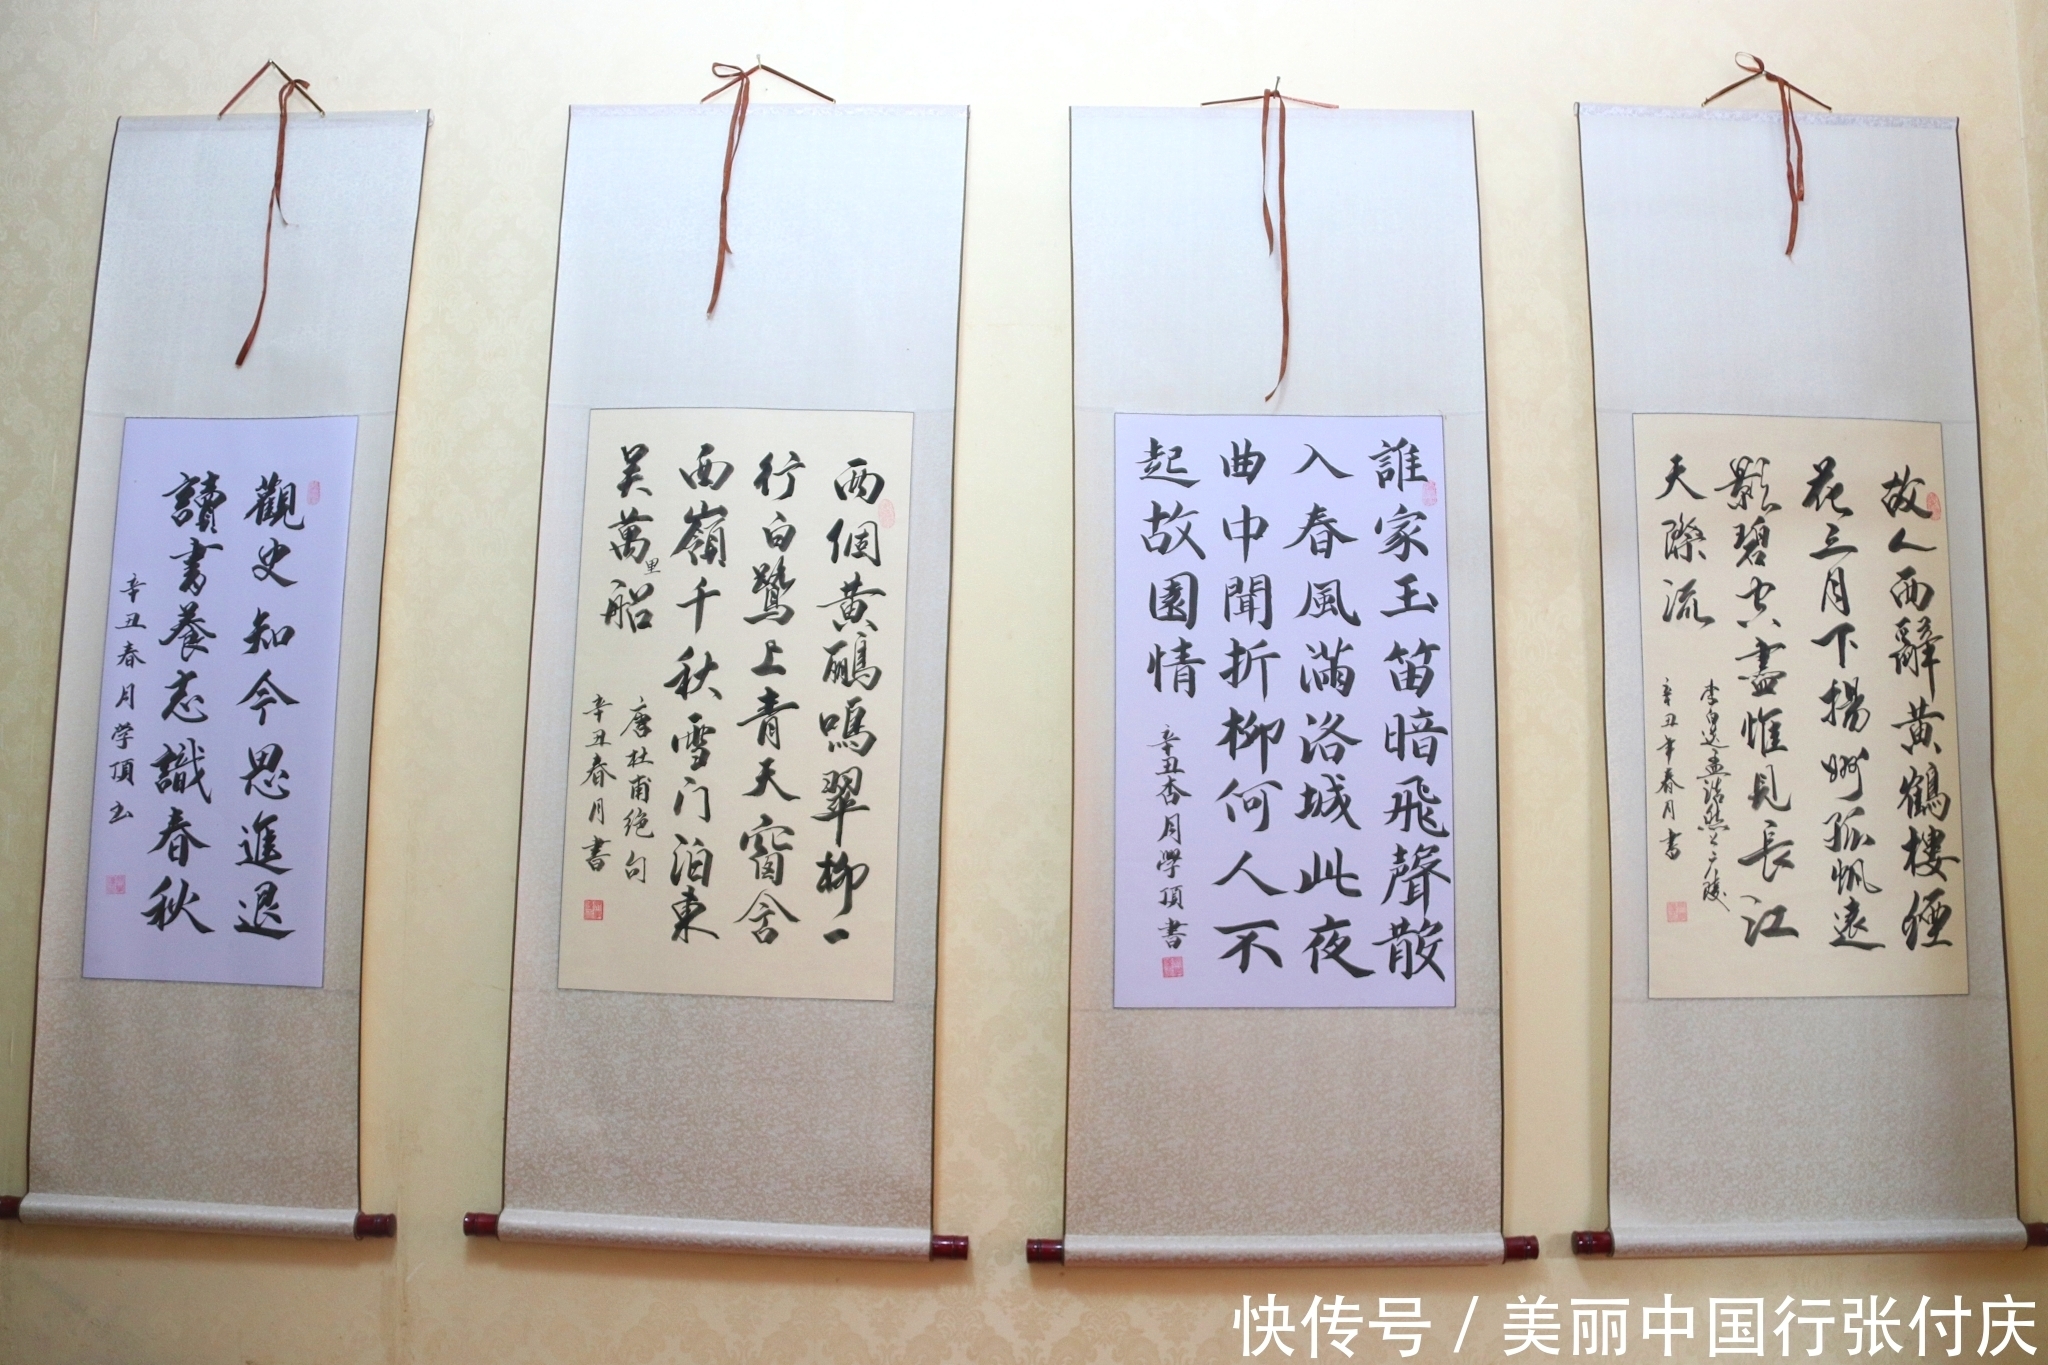 觀史知今思進退
讀書養志識春秋
辛丑春月学頂书
两個黄鸝鳴翠柳一
行白鷺上青天窗含
西嶺千秋雪门泊東
吴萬里船
唐杜甫绝句
辛丑春月書
誰家玉笛暗飛聲散
入春風滿洛城此夜
曲中聞折柳何人不
起故園情
辛丑杏月學頂書
故人西辭黄鶴樓煙
花三月下揚州孤帆遠
影碧空盡惟見長江
天際流
李白送孟浩然之广陵
辛丑年春月書
快传号 / 美丽中国行张付庆